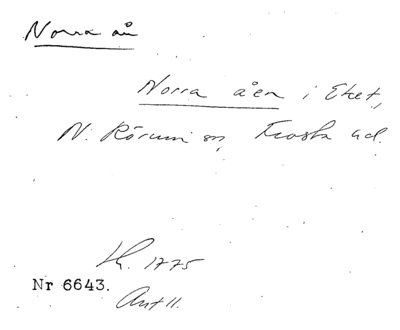 Norra ån
Norra åen i Eket,
N. Rörum sn, Frosta hd.
Lk. 1775
Nr 6643.
Ant 11.